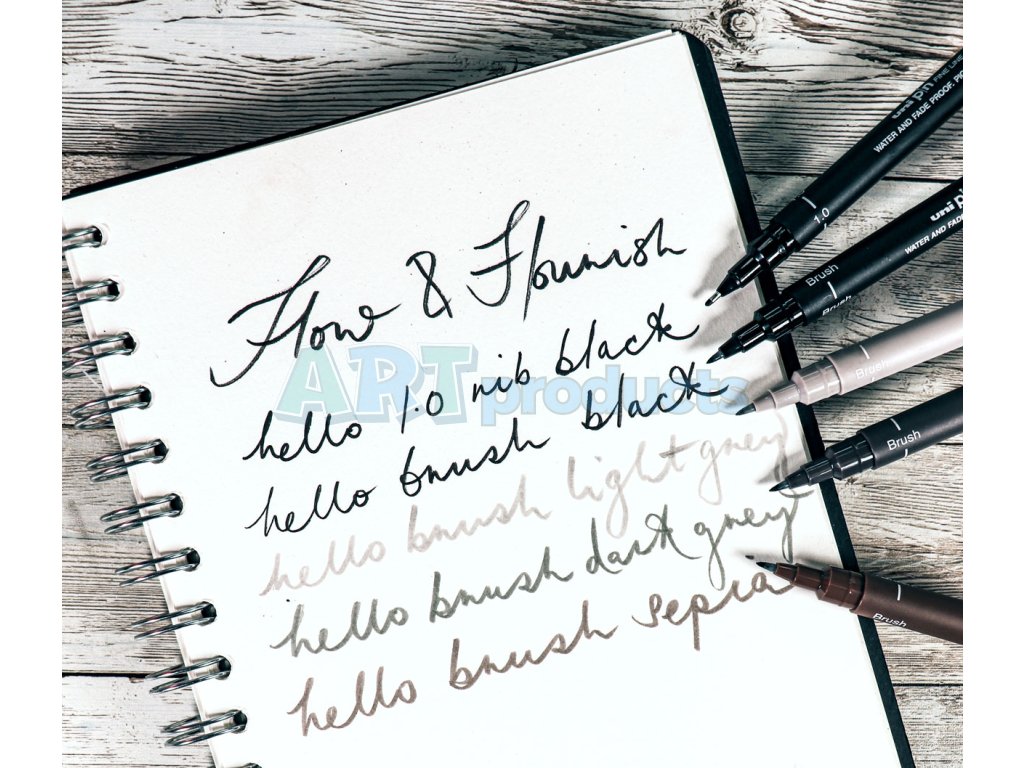 Flow & Flourish
hello 1.0 nib black
hello brush black
hello brush light grey
hello brush dark grey
hello brush sepia
ART products
uni pin FINE LINE
WATER AND FADE PROOF, PIG
1.0
uni pin
WATER AND FADE
Brush
Brush
Brush
Brush
Brush